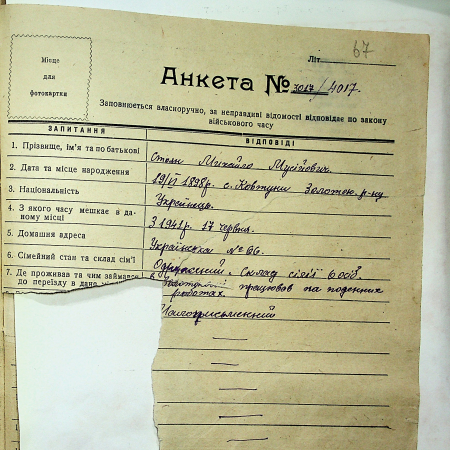 67
Літ
Місце
для
фотокартки
Анкета № 3017/4017.
Заповнюється власноручно, за неправдиві відомості відповідає по закону
військового часу
ЗАПИТАННЯ ВІДПОВІДІ
1. Прізвище, ім'я та по батькові Михайло Мусійович.
2. Дата та місце народження 19/VI 1898р. с. Ковтуни Золотон. р-ну
3. Національність Українець.
4. З якого часу мешкає в да-
ному місці З 1941р. 17 червня.
5. Домашня адреса Українська № 66.
6. Сімейний стан та склад сім'ї Одружений. Склад сім'ї 6 осіб.
7. Де проживав та чим займався
до переїзду в дано працював на поденних
роботах.
Малописьменний